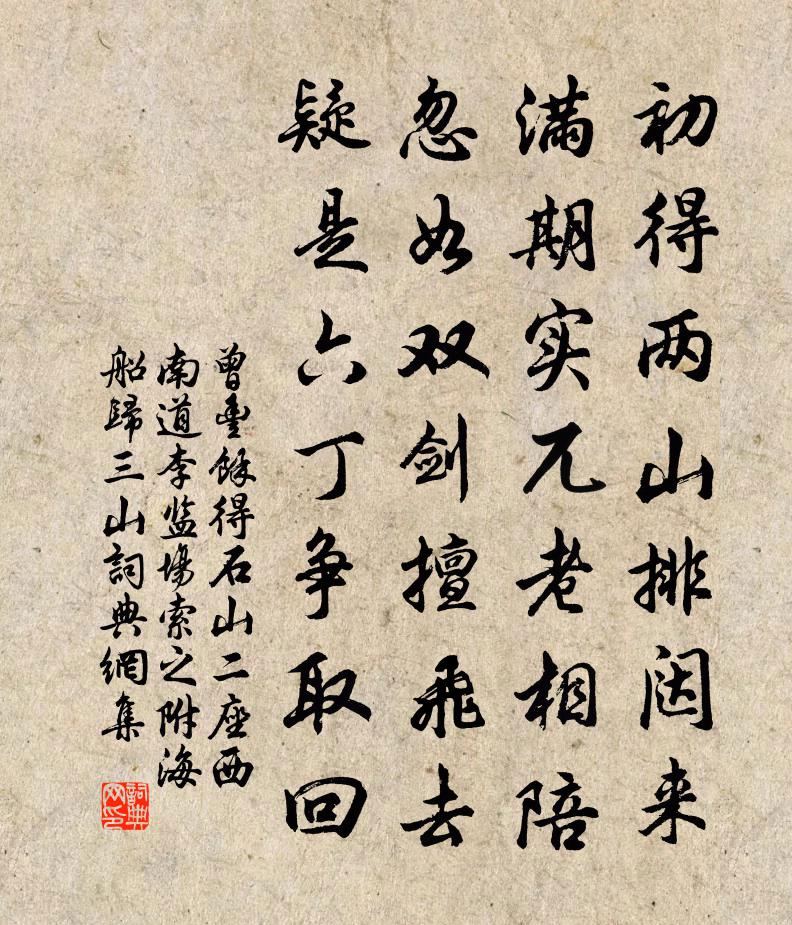 初得两山排闼来
满期实兀老相陪
忽如双剑擅飞去
疑是六丁争取回
曾豊馀得石山二座西
南道李监场索之附海
船歸三山詞典網集
詞典
网印